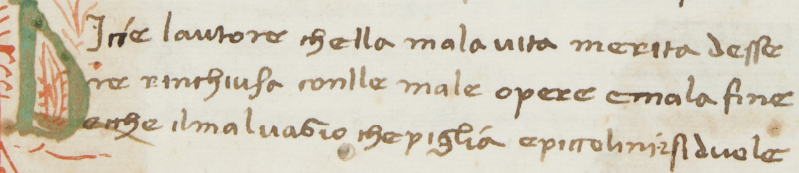 Dicie lautore chella mala vita merita desse
ire rinchiusa conlle male opere emala fine
ecche ilmalvagio chepiglia epiccolini si duole